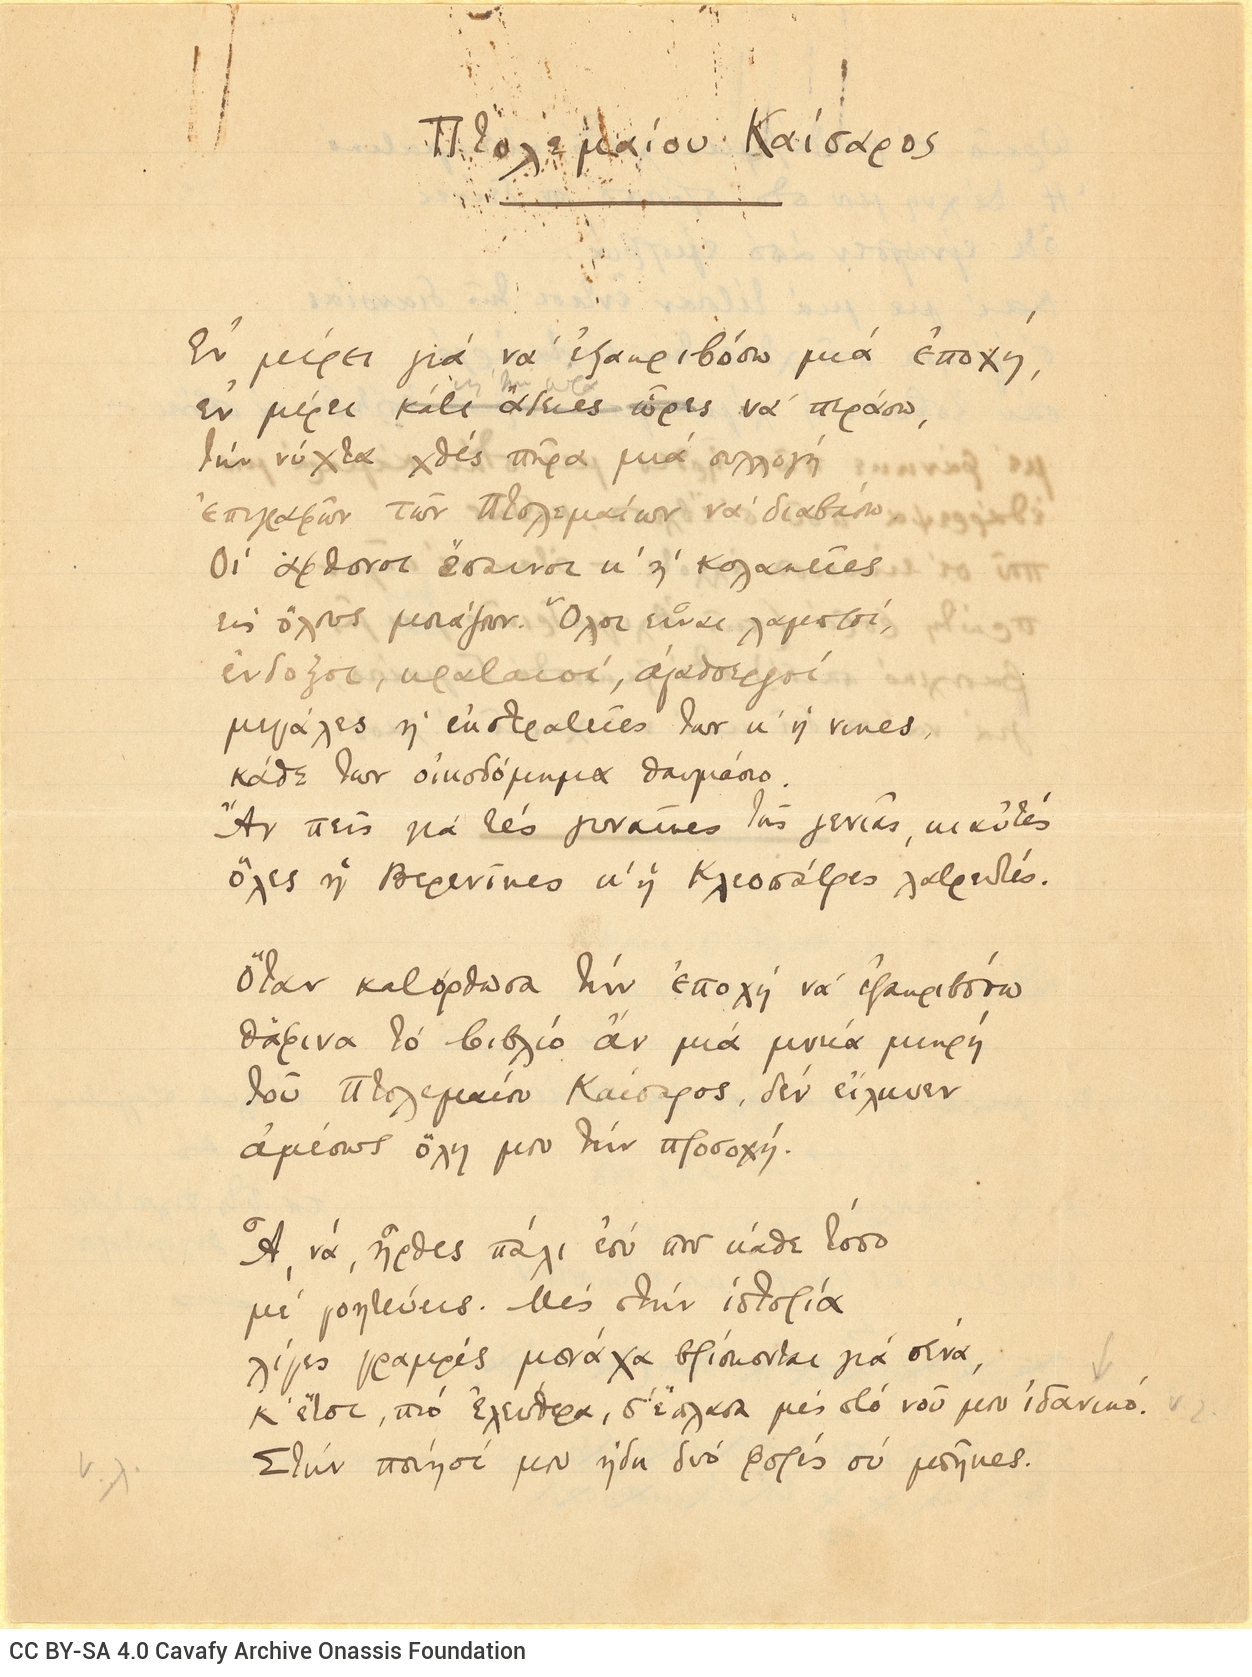 Πτολεμαίου Καίσαρος
Ἐν μέρει γιά νά ἐξακριβόσω μιά ἐποχή,
ἐν μέρει κάτι ἄδειες ὧρες νά περάσω,
τήν νύχτα χθές πῆρα μιά συλλογή
ἐπιγραφῶν τῶν Πτολεμαίων νά διαβάσω
Οἱ ἄφθονοι ἔπαινοι κ' ἡ κολακεῖες
εἰς ὅλους μοιάζουν. Ὅλοι εἶναι λαμπροί,
ἔνδοξοι, κραταιοί, ἀγαθοεργοί
μεγάλες ἡ ἐκστρατεῖες των κ' ἡ νικες,
κάθε των οἰκοδόμημα θαυμάσιο.
Ἄν πεῖς γιά τές γυναῖκες τῆς γενιᾶς, κι αὐτές
ὅλες ἡ Βερενῖκες κ' ἡ Κλεοπάτρες λατρευτές.
Ὅταν κατόρθωσα τήν ἐποχή νά ἐξακριβόσω
θἄφινα τό βιβλίο ἄν μιά μνεία μικρή
τοῦ Πτολεμαίου Καίσαρος, δέν εἵλκυεν
ἀμέσως ὅλη μου τήν προσοχή.
Ἄ, νά, ἦρθες πάλι ἐσύ που κάθε τόσο
μέ γοητεύεις. Μές στήν ἱστορία
λίγες γραμμές μονάχα βρίσκονται γιά σένα,
κ' ἔτσι, πιό ἐλεύθερα, σ' ἔπλασα μές στό νοῦ μου ἰδανικό.
Στήν ποίησί μου ἤδη δυό φορές σύ μπῆκες.
CC BY-SA 4.0 Cavafy Archive Onassis Foundation